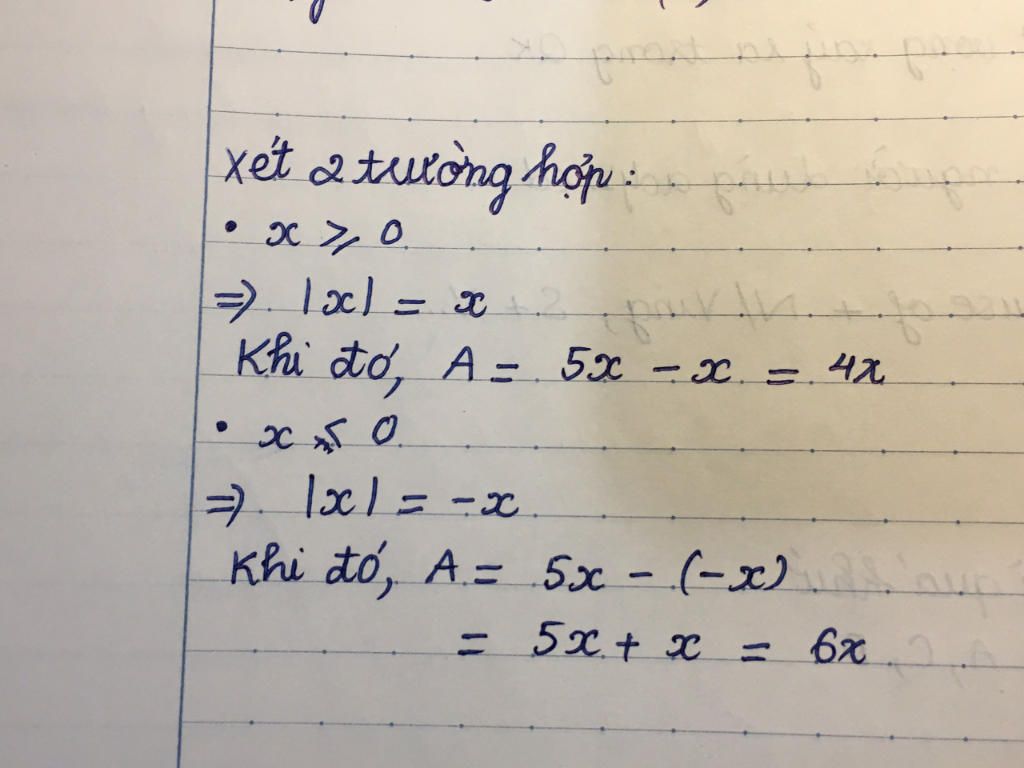 Xét 2 trường hợp:
• x ⩾ 0
⇒ |x| = x
Khi đó, A = 5x - x = 4x
• x < 0
⇒ |x| = -x
Khi đó, A = 5x - (-x)
= 5x + x = 6x